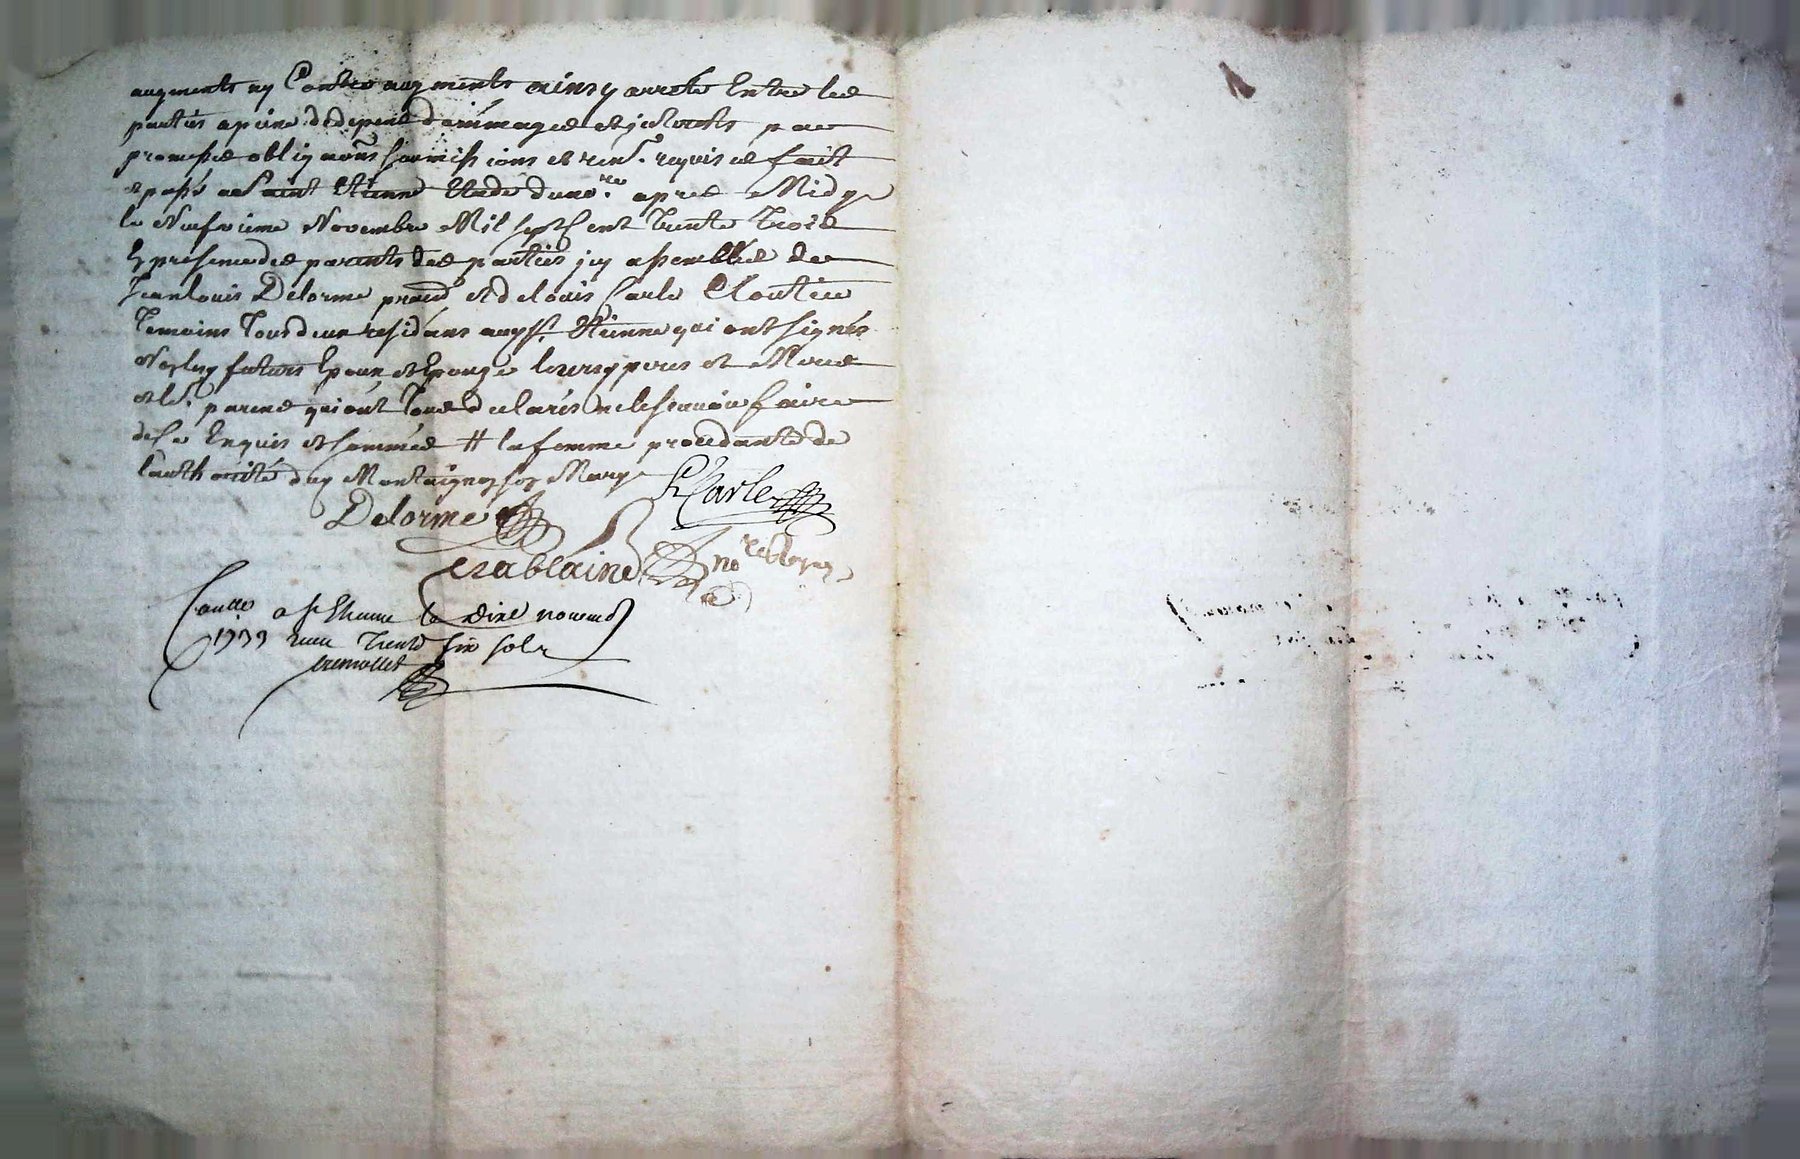 augments ny Contre augments ainsy arresté Entre les
parties apeine de depens dommages et interests par
promesses obligaõns soumissions et ren.^s requis es fait
et passé a Saint Etienne Etude du no.^re apres Midy
le Neufvieme Novembre Mil sept Cent Trente Trois
En presence des parents des parties icy assemblés de
Jean Louis Delorme prat et de Louis Carle Cloutier
Temoins Tous deux residans audit S.^t Etienne qui ont signés
Non les futurs Epoux et Epouze leursy peres et Meres
et les. parens qui ont Tous declarés ne le scavoir faire
de ce Enquis et sommés # la femme procedante de
lauthorité dug Montaignon son Mary
L Carle
Delorme
Crablaine no^re Royal
Conlle a St Etienne le dixe novemb
1733 receu Trente six sols